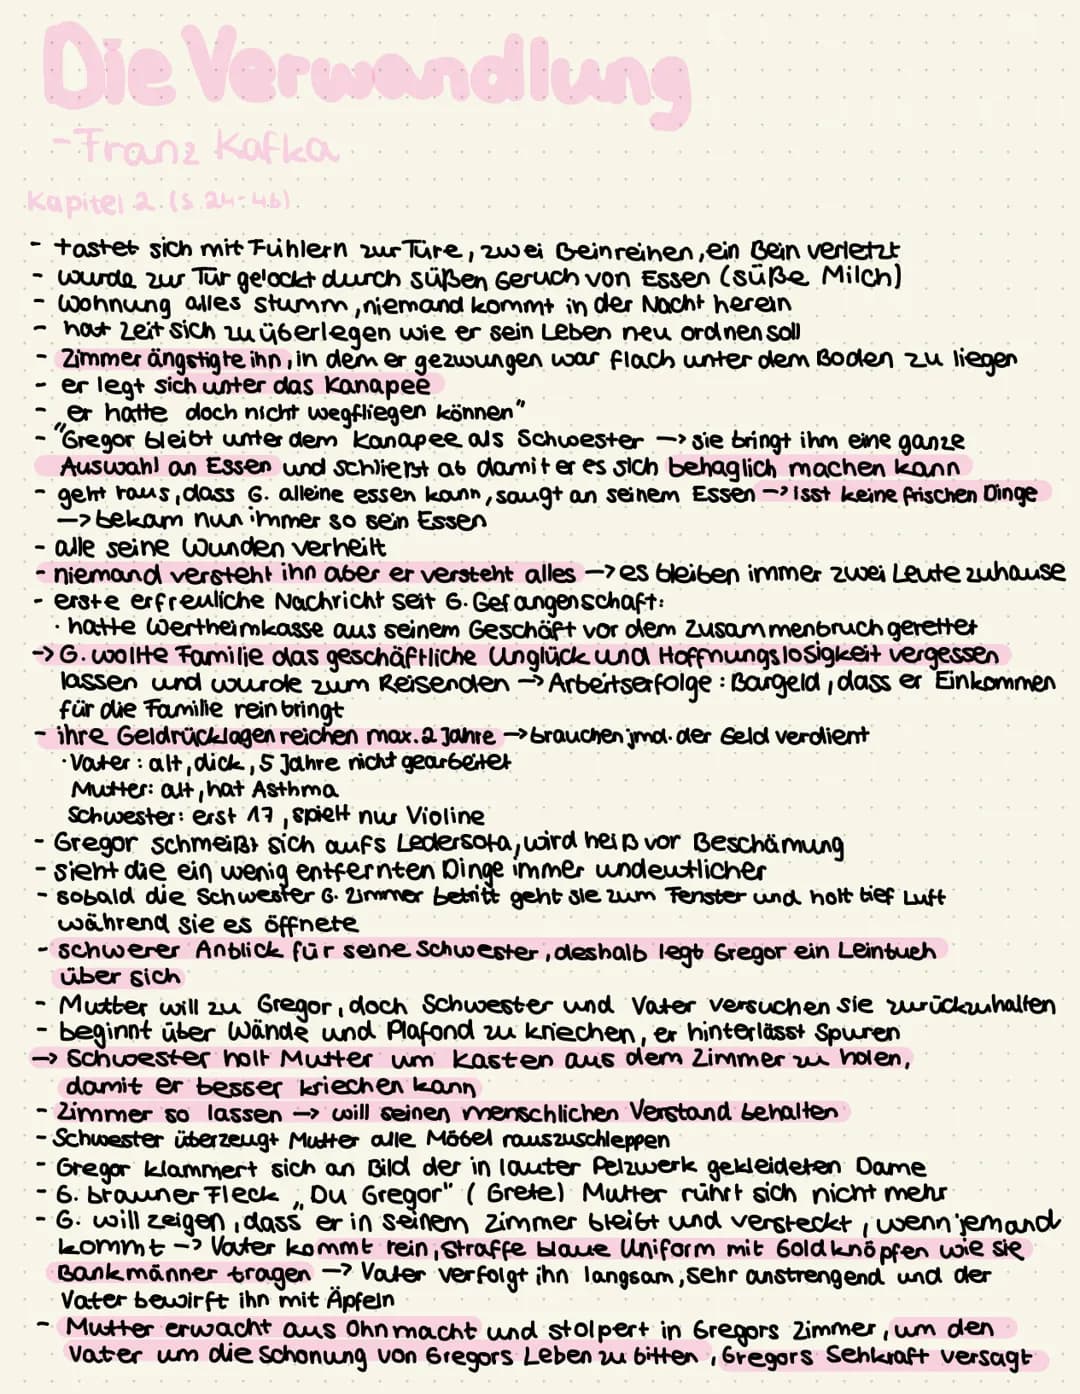 Die Verwandlung
-Franz Kafka
Kapitel 2 (S. 24-46)
- tastet sich mit Fühlern zur Türe, zwei Beinreihen, ein Bein verletzt
- wurde zur Tür gelockt durch süßen Geruch von Essen (süße Milch)
- Wohnung alles stumm, niemand kommt in der Nacht herein
- hat Zeit sich zu überlegen wie er sein Leben neu ordnen soll
- Zimmer ängstigte ihn, in dem er gezwungen war flach unter dem Boden zu liegen
- er legt sich unter das Kanapee
- „er hätte doch nicht wegfliegen können"
- Gregor bleibt unter dem Kanapee als Schwester -> sie bringt ihm eine ganze
Auswahl an Essen und schließt ab damit er es sich behaglich machen kann
- geht raus, dass G. alleine essen kann, saugt an seinem Essen -> isst keine frischen Dinge
-> bekam nun immer so sein Essen
- alle seine Wunden verheilt
- niemand versteht ihn aber er versteht alles -> es bleiben immer zwei Leute zuhause
- erste erfreuliche Nachricht seit G. Gefangenschaft:
· hatte Wertheimkasse aus seinem Geschäft vor dem Zusammenbruch gerettet
-> G. wollte Familie das geschäftliche Unglück und Hoffnungslosigkeit vergessen
lassen und wurde zum Reisenden -> Arbeitserfolge: Bargeld, dass er Einkommen
für die Familie rein bringt
- ihre Geldrücklagen reichen max. 2 Jahre -> brauchen jmd. der Geld verdient
· Vater: alt, dick, 5 Jahre nicht gearbeitet
Mutter: alt, hat Asthma
Schwester: erst 17, spielt nur Violine
- Gregor schmeißt sich aufs Ledersofa, wird heiß vor Beschämung
- sieht die ein wenig entfernten Dinge immer undeutlicher
- sobald die Schwester G. Zimmer betritt geht sie zum Fenster und holt tief Luft
während sie es öffnete
- schwerer Anblick für seine Schwester, deshalb legt Gregor ein Leintuch
über sich
- Mutter will zu Gregor, doch Schwester und Vater versuchen sie zurückzuhalten
- beginnt über Wände und Plafond zu kriechen, er hinterlässt Spuren
-> Schwester holt Mutter um Kasten aus dem Zimmer zu holen,
damit er besser kriechen kann
- Zimmer so lassen -> will seinen menschlichen Verstand behalten
- Schwester überzeugt Mutter alle Möbel rauszuschleppen
- Gregor klammert sich an Bild der in lauter Pelzwerk gekleideten Dame
- G. brauner Fleck „Du Gregor" (Grete) Mutter rührt sich nicht mehr
- G. will zeigen, dass er in seinem Zimmer bleibt und versteckt, wenn jemand
kommt -> Vater kommt rein, straffe blaue Uniform mit Goldknöpfen wie sie
Bankmänner tragen -> Vater verfolgt ihn langsam, sehr anstrengend und der
Vater bewirft ihn mit Äpfeln
- Mutter erwacht aus Ohnmacht und stolpert in Gregors Zimmer, um den
Vater um die Schonung von Gregors Leben zu bitten, Gregors Sehkraft versagt